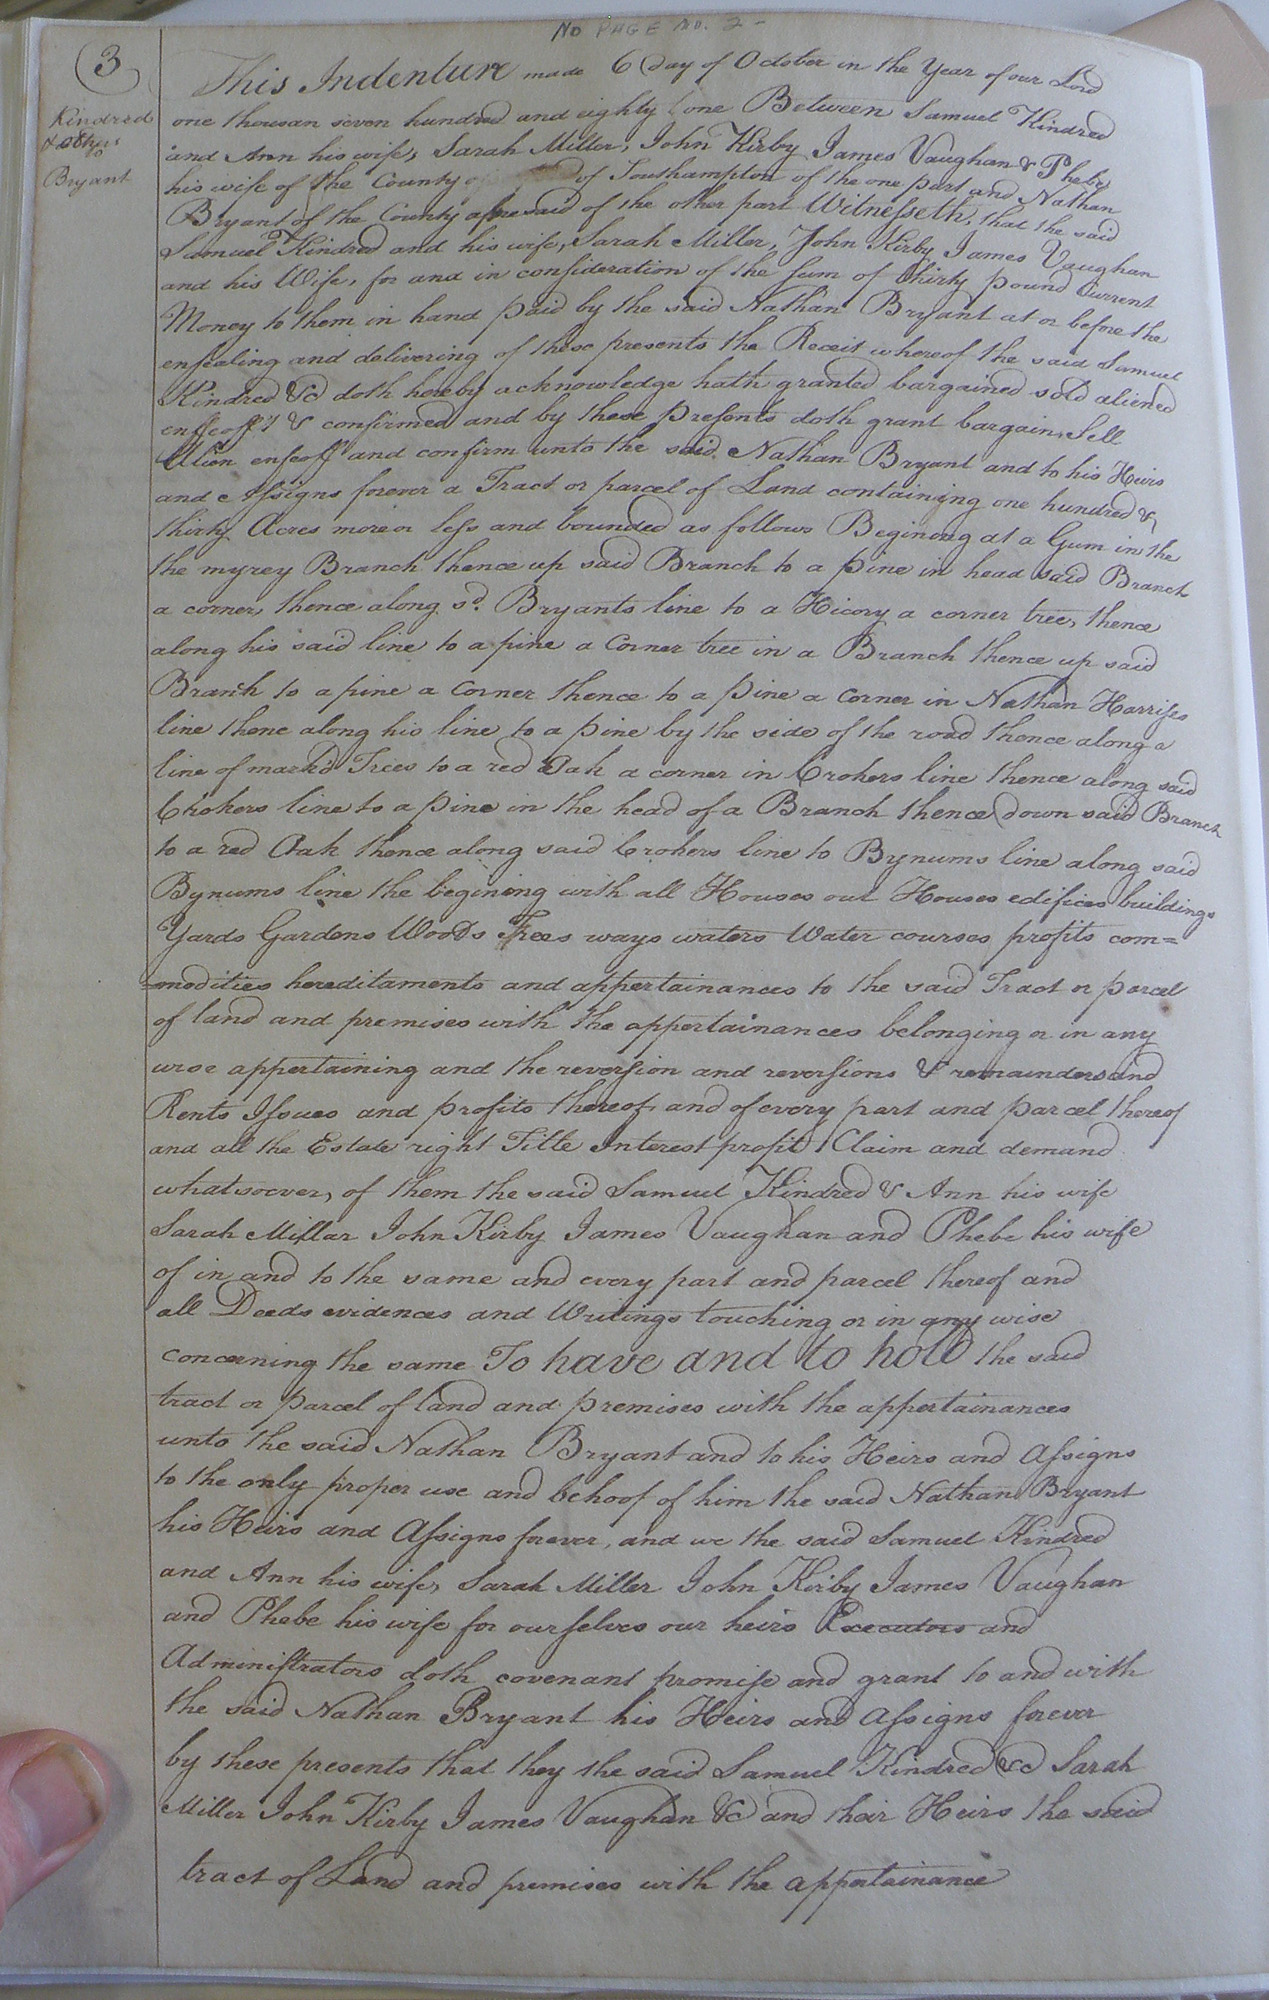 NO PAGE NO. 2 -
3
Kindred
& others
to
Bryant
This Indenture made 6 day of October in the Year of our Lord
one thousan seven hundred and eighty one Between Samuel Kindred
and Ann his wife, Sarah Miller, John Kirby James Vaughan & Phebe
his wife of the County of Southampton of the one part and Nathan
Bryant of the County aforesaid of the other part Witnesseth, that the said
Samuel Kindred and his wife, Sarah Miller, John Kirby James Vaughan
and his Wife, for and in consideration of the sum of thirty pound Current
Money to them in hand paid by the said Nathan Bryant at or before the
ensealing and delivering of these presents the Receit whereof the said Samuel
Kindred &c doth hereby acknowledge hath granted bargained sold aliened
enfeoff'd & confirmed and by these presents doth grant bargain, Sell
Alien enfeoff and confirm unto the said Nathan Bryant and to his Heirs
and Assigns forever a Tract or parcel of Land containing one hundred &
thirty Acres more or less and bounded as follows Begining at a Gum in the
the myrey Branch thence up said Branch to a pine in head said Branch
a corner, thence along sd. Bryants line to a Hicory a corner tree, thence
along his said line to a pine a Corner tree in a Branch thence up said
Branch to a pine a Corner thence to a pine a Corner in Nathan Harrises
line thence along his line to a pine by the side of the road thence along a
line of mark'd Trees to a red Oak a corner in Crokers line thence along said
Crokers line to a pine in the head of a Branch thence down said Branch
to a red Oak thence along said Crokers line to Bynums line along said
Bynums line the begining with all Houses out Houses edifices buildings
Yards Gardens Woods Trees ways waters Water courses profits com=
=modities hereditaments and appertainances to the said Tract or parcel
of land and premises with the appertainances belonging or in any
wise appertaining and the reversion and reversions & remainders and
Rents Issues and profits thereof and of every part and parcel thereof
and all the Estate right Title Interest profit Claim and demand
whatsoever, of them the said Samuel Kindred & Ann his wife
Sarah Millar John Kirby James Vaughan and Phebe his wife
of in and to the same and every part and parcel thereof and
all Deeds evidences and Writings touching or in any wise
concerning the same To have and to hold the said
tract or parcel of land and premises with the appertainances
unto the said Nathan Bryant and to his Heirs and Assigns
to the only proper use and behoof of him the said Nathan Bryant
his Heirs and Assigns forever, and we the said Samuel Kindred
and Ann his wife, Sarah Miller John Kirby James Vaughan
and Phebe his wife for ourselves our heirs Executors and
Administrators doth covenant promise and grant to and with
the said Nathan Bryant his Heirs and Assigns forever
by these presents that they the said Samuel Kindred &c Sarah
Miller John Kirby James Vaughan &c and their Heirs the said
tract of Land and premises with the appertainance